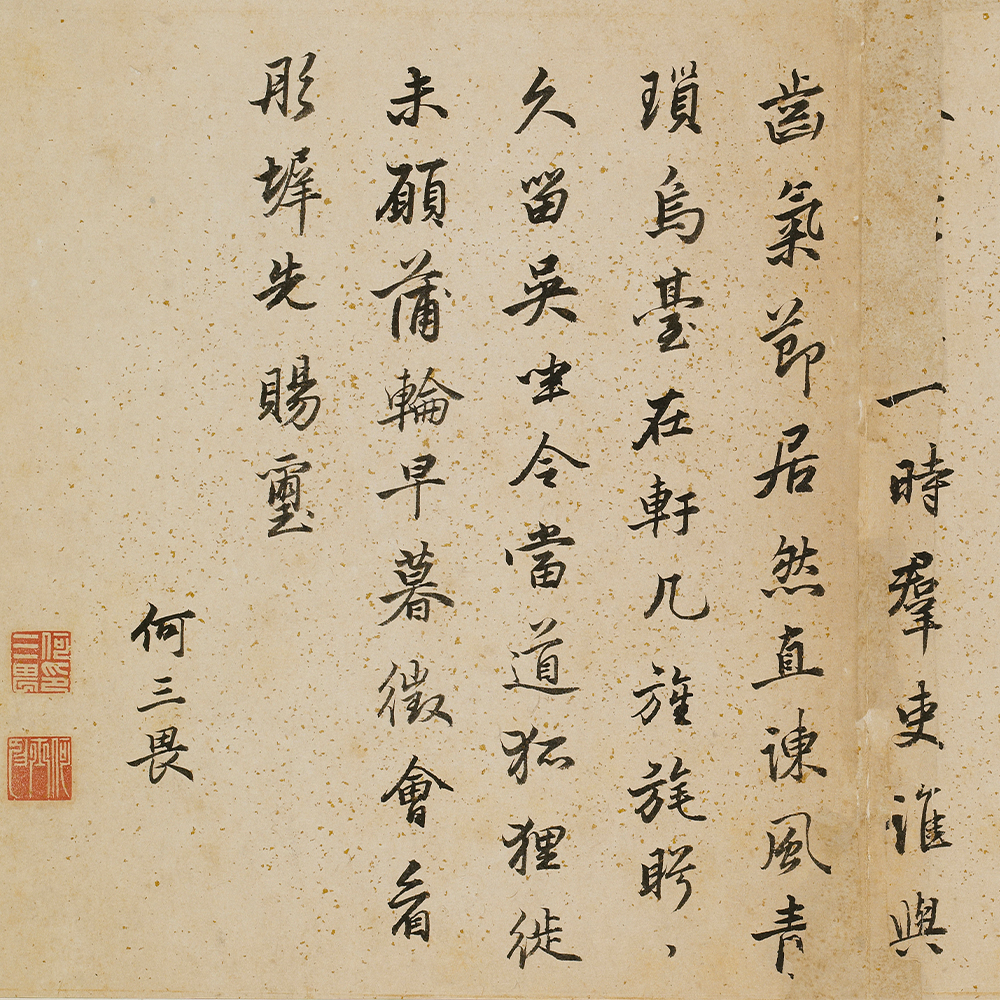 一時羣吏誰與
齒氣節居然直諫風青
瑣烏臺在軒几旌旄盻、
久留吳坐令當道狐狸徙
未願蒲輪早暮徵會看
彤墀先賜璽
何三畏
何三畏印